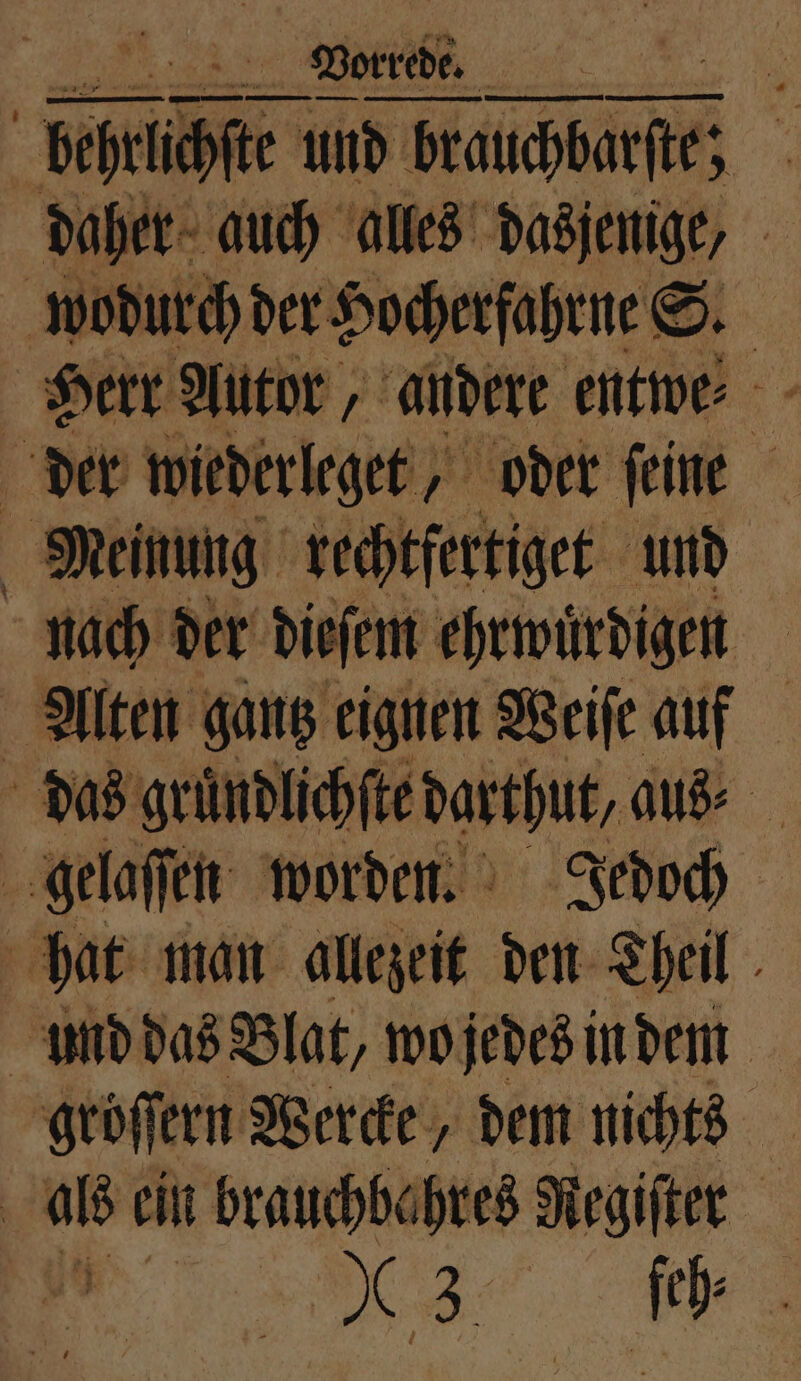 Vorrede.
behrlichſte und brauchbarſte;
daher auch alles dasjenige,
wodurch der Hocherfahrne S.
Herr Autor, andere entwe⸗
der wiederleget, oder ſeine
Meinung rechtfertiget und
nach der dieſem ehrwuͤrdigen
Alten gantz eignen Weiſe auf
das gruͤndlichſte darthut, aus⸗
gelaſſen worden. Jedoch
hat man allezeit den Theil
und das Blat, wo jedes in dem
groͤſſern Wercke, dem nichts
als ein brauchbahres Regiſter
)( 3 feh⸗